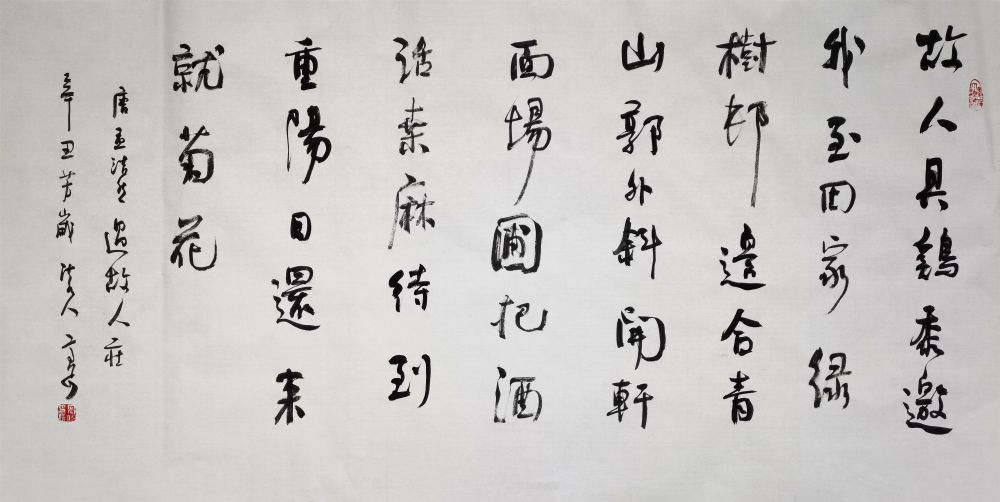 故人具鷄黍邀
我至田家绿
樹邨邊合青
山郭外斜開軒
面場圃把酒
話桑麻待到
重陽日還来
就菊花
唐孟浩然過故人莊
辛丑芳歲